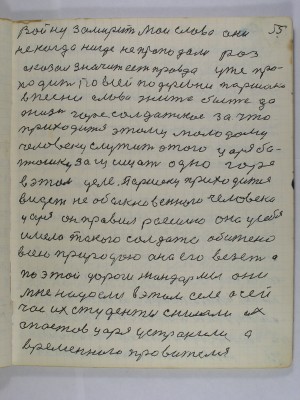 55
войну замирит мои слова они
некогда нигде непроподали раз
сказал значит ест правда уже про-
ходит по всей подеревни паршока
в песни слова жити бити да
горе солдатское за что
приходится этому молодому
человеку служит этого царя ба-
тюшку защищат одно горя
в этом деле. Паршеку приходится
видет не обыкновенного человека
царя оправил россию она у себя
имела такого солдата обижено
всею природою она его везет а
по этой дороги жандармы они
мне надоели в этом селе осей
час их студенты снимали их
спостов царя устранили а
временного провителя